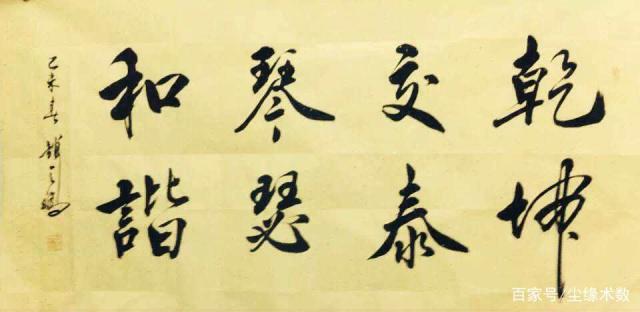 乾坤
交泰
琴瑟
和諧
未春
百家号/尘缘术数